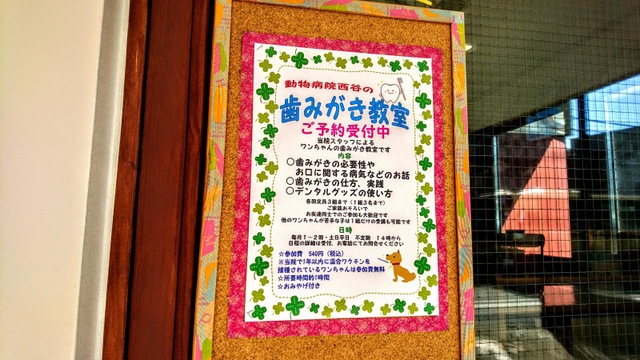 動物病院西谷の
歯みがき教室
ご予約受付中
当院スタッフによる
ワンちゃんの歯みがき教室です
内容
○歯みがきの必要性や
お口に関する病気などのお話
○歯みがきの仕方、実践
○デンタルグッズの使い方
各回定員3組まで（1組3名まで）
ご家族おそろいで
お友達同士でのご参加も大歓迎です
他のワンちゃんが苦手な子は1組だけの受講も可能です
日時
毎月1～2回・土日平日 不定期 14時から
日程の詳細は受付、お電話にてお問合せください
☆参加費 540円（税込）
※当院で1年以内に混合ワクチンを
接種されているワンちゃんは参加費無料
☆所要時間約1時間
☆おみやげ付き